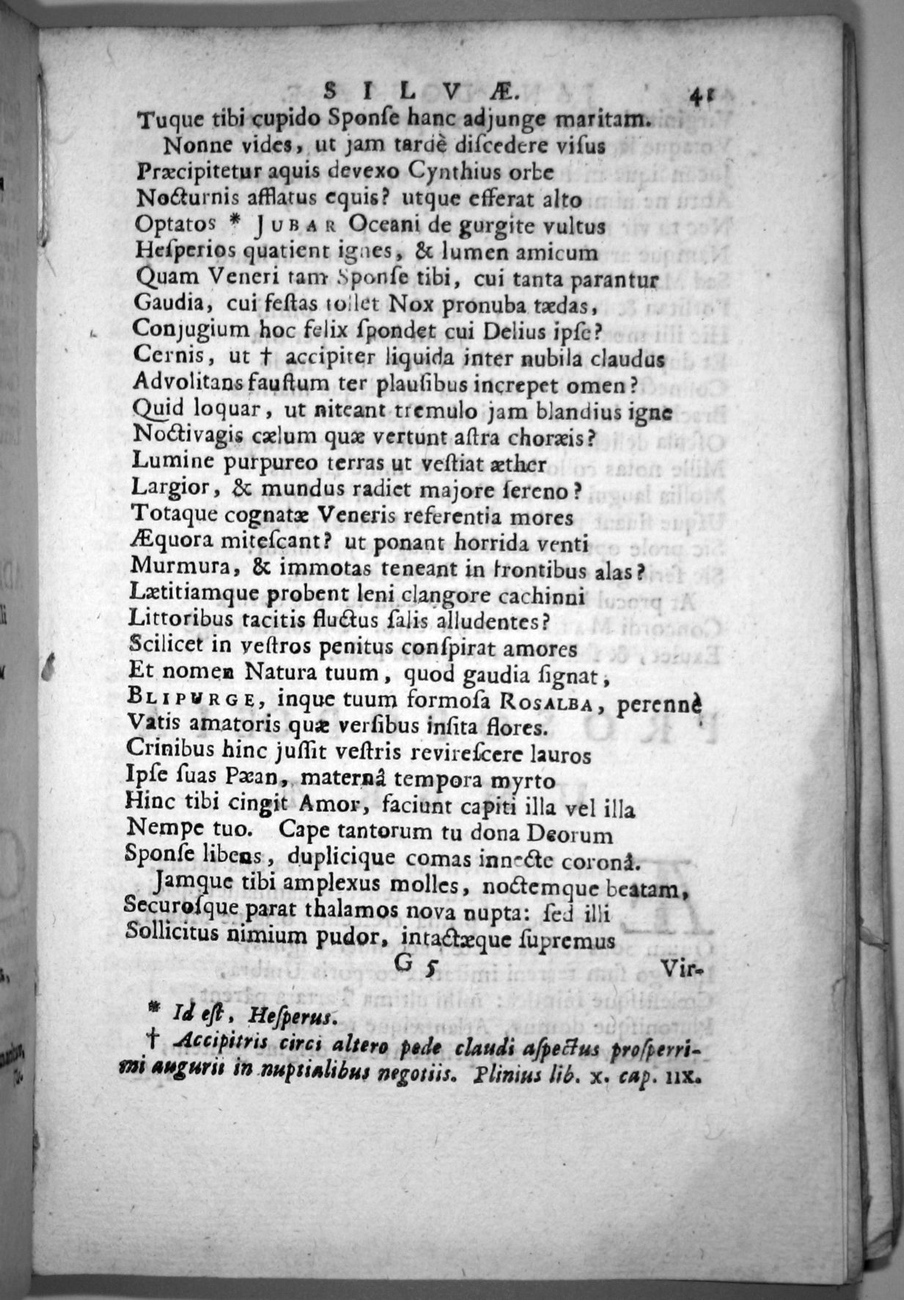 SILVÆ. 41
Tuque tibi cupido Sponſe hanc adjunge maritam.
Nonne vides, ut jam tardè diſcedere viſus
Præcipitetur aquis devexo Cynthius orbe
Nocturnis afflatus equis? utque efferat alto
Optatos * JUBAR Oceani de gurgite vultus
Heſperios quatient ignes, & lumen amicum
Quam Veneri tam Sponſe tibi, cui tanta parantur
Gaudia, cui feſtas tollet Nox pronuba tædas,
Conjugium hoc felix ſpondet cui Delius ipſe?
Cernis, ut † accipiter liquida inter nubila claudus
Advolitans fauſtum ter plauſibus increpet omen?
Quid loquar, ut niteant tremulo jam blandius igne
Noctivagis cælum quæ vertunt aſtra choræis?
Lumine purpureo terras ut veſtiat æther
Largior, & mundus radiet majore ſereno?
Totaque cognatæ Veneris referentia mores
Æquora miteſcant? ut ponant horrida venti
Murmura, & immotas teneant in frontibus alas?
Lætitiamque probent leni clangore cachinni
Littoribus tacitis fluctus ſalis alludentes?
Scilicet in veſtros penitus conſpirat amores
Et nomen Natura tuum, quod gaudia ſignat,
BLIPURGE, inque tuum formoſa ROSALBA, perennè
Vatis amatoris quæ verſibus inſita flores.
Crinibus hinc juſſit veſtris revireſcere lauros
Ipſe ſuas Pæan, maternâ tempora myrto
Hinc tibi cingit Amor, faciunt capiti illa vel illa
Nempe tuo. Cape tantorum tu dona Deorum
Sponſe libens, duplicique comas innecte coronâ.
Jamque tibi amplexus molles, noctemque beatam,
Securoſque parat thalamos nova nupta: ſed illi
Sollicitus nimium pudor, intactæque ſupremus
G 5 Vir-
* Id eſt, Heſperus.
† Accipitris circi altero pede claudi aſpectus proſperri-
mi augurii in nuptialibus negotiis. Plinius lib. x. cap. IIX.